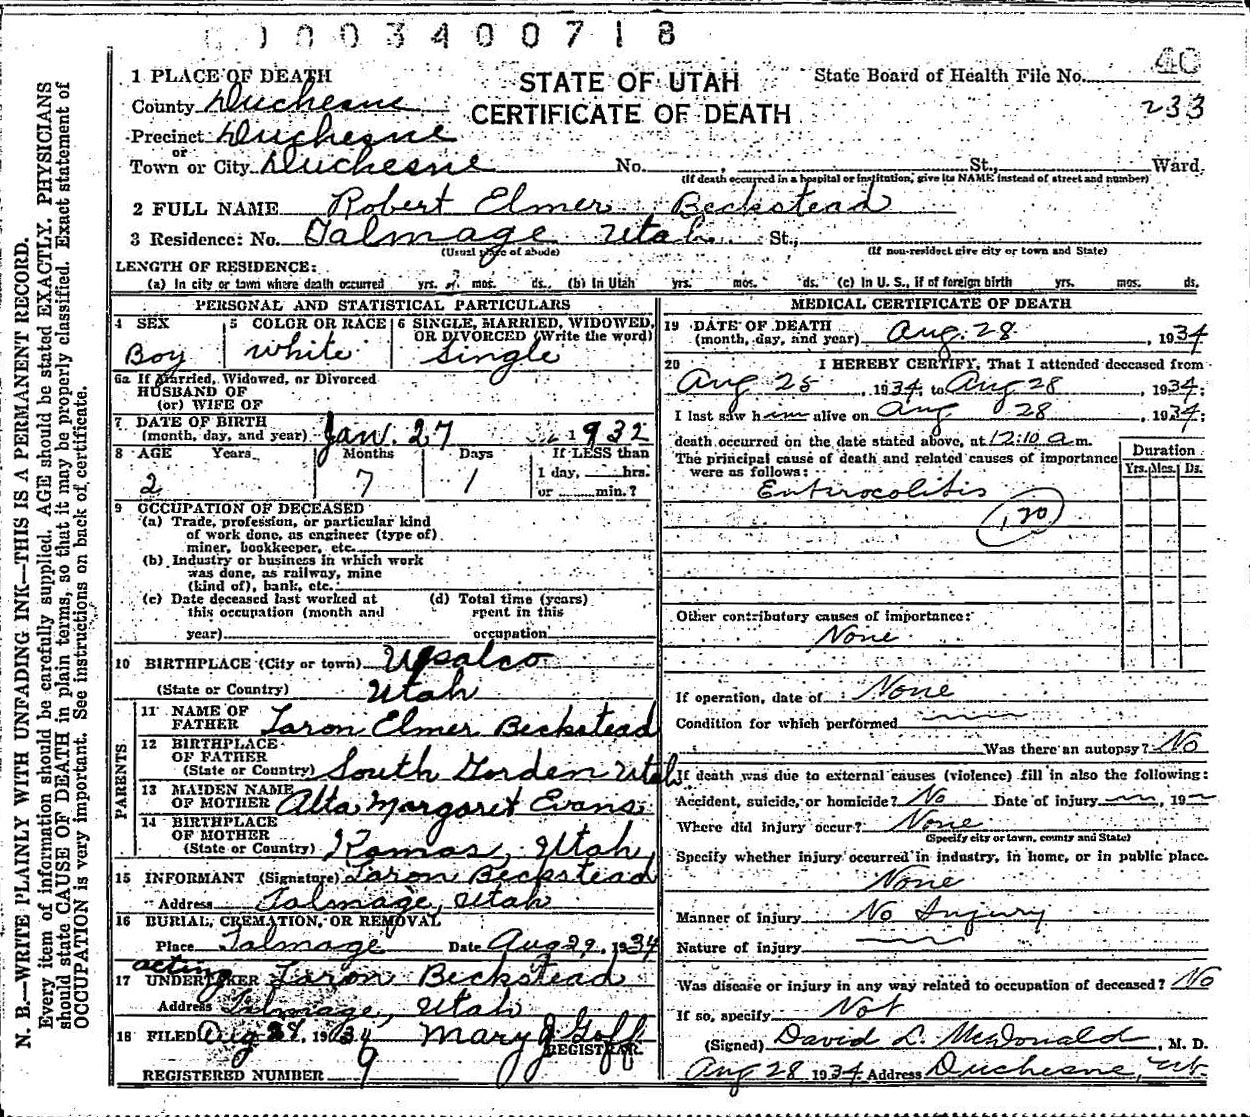 0 0 0 3 4 0 0 7 1 8
40
1 PLACE OF DEATH
STATE OF UTAH
State Board of Health File No.
County Duchesne
CERTIFICATE OF DEATH
233
Precinct Duchesne
or
Town or City Duchesne No. , St., Ward.
(If death occurred in a hospital or institution, give its NAME instead of street and number)
2 FULL NAME Robert Elmer Beckstead
3 Residence: No. Talmage Utah St.,
(Usual place of abode) (If non-resident give city or town and State)
LENGTH OF RESIDENCE:
(a) In city or town where death occurred yrs. mos. ds. (b) In Utah yrs. mos. ds. (c) In U. S., if of foreign birth yrs. mos. ds.
PERSONAL AND STATISTICAL PARTICULARS
4 SEX 5 COLOR OR RACE 6 SINGLE, MARRIED, WIDOWED,
OR DIVORCED (Write the word)
Boy white single
6a If Married, Widowed, or Divorced
HUSBAND OF
(or) WIFE OF
7 DATE OF BIRTH
(month, day, and year) Jan. 27 1932
8 AGE Years Months Days If LESS than
1 day, hrs.
or min.?
2 7 1
9 OCCUPATION OF DECEASED
(a) Trade, profession, or particular kind
of work done, as engineer (type of)
miner, bookkeeper, etc.
(b) Industry or business in which work
was done, as railway, mine
(kind of), bank, etc.
(c) Date deceased last worked at (d) Total time (years)
this occupation (month and spent in this
year) occupation
10 BIRTHPLACE (City or town) Upalco
(State or Country) Utah
PARENTS
11 NAME OF
FATHER Laron Elmer Beckstead
12 BIRTHPLACE
OF FATHER
(State or Country) South Jorden Utah
13 MAIDEN NAME
OF MOTHER Alta Margaret Evans
14 BIRTHPLACE
OF MOTHER
(State or Country) Kamas, Utah
15 INFORMANT (Signature) Laron Beckstead
Address Talmage, Utah
16 BURIAL, CREMATION, OR REMOVAL
Place Talmage Date Aug 29, 1934
acting
17 UNDERTAKER Laron Beckstead
Address Talmage, Utah
18 FILED Aug 1934 Mary J Goff
REGISTRAR.
REGISTERED NUMBER 9
MEDICAL CERTIFICATE OF DEATH
19 DATE OF DEATH
(month, day, and year) Aug. 28, 1934
20 I HEREBY CERTIFY, That I attended deceased from
Aug 25, 1934, to Aug 28, 1934;
I last saw him alive on Aug 28, 1934;
death occurred on the date stated above, at 12:10 a m.
The principal cause of death and related causes of importance
were as follows:
Duration
Yrs. Mos. Ds.
Enterocolitis
120
Other contributory causes of importance:
None
If operation, date of None
Condition for which performed
Was there an autopsy? No
If death was due to external causes (violence) fill in also the following:
Accident, suicide, or homicide? No Date of injury , 19
Where did injury occur? None
(Specify city or town, county and State)
Specify whether injury occurred in industry, in home, or in public place.
None
Manner of injury No Injury
Nature of injury
Was disease or injury in any way related to occupation of deceased? No
If so, specify Not
(Signed) David L. McDonald, M. D.
Aug 28 1934 Address Duchesne, Ut.
N. B.—WRITE PLAINLY WITH UNFADING INK—THIS IS A PERMANENT RECORD.
Every item of information should be carefully supplied. AGE should be stated EXACTLY. PHYSICIANS
should state CAUSE OF DEATH in plain terms, so that it may be properly classified. Exact statement of
OCCUPATION is very important. See instructions on back of certificate.